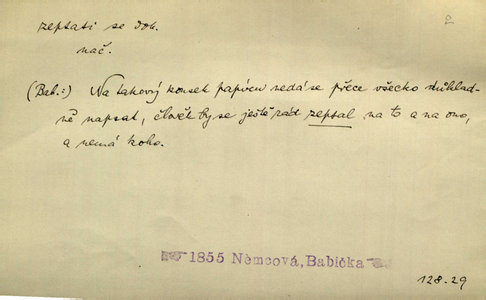 zeptati se dok.
nač.
(Bab.:) Na takový kousek papíru nedá se přece všecko důklad-
ně napsat, člověk by se ještě rád zeptal na to a na ono,
a nemá koho.
1855 Němcová, Babička
128.29